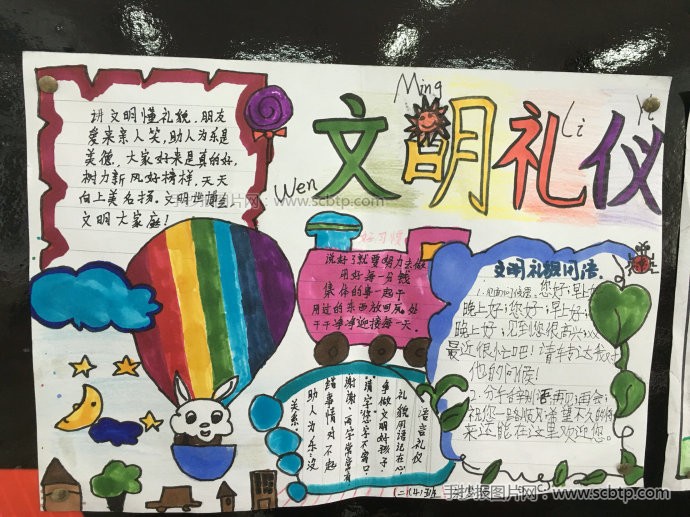 Wen Ming Li Yi
文明礼仪
讲文明懂礼貌，朋友
爱来亲人笑，助人为乐是
美德，大家好来是真的好，
树力新风好榜样，天天
向上美名扬，文明世博是
文明大家庭！
好习惯
说好了就要努力去做
用好每一分钱
集体的事一起干
用过的东西放回原处
干干净净迎接每一天
文明礼貌用语
1.见面问候语：您好；早上好；
晚上好；您好；早上好；
晚上好；见到您很高兴；
最近很忙吧！请转达我对
他的问候！
2.分手告别语：再见；再会；
祝您一路顺风；希望不久的将
来还能在这里欢迎您。
语言礼仪
礼貌用语记在心，
争做文明好孩子。
"请"字"您"字不离口，
"谢谢"二字常常有
错事情对不起
助人为乐没
关系。
手抄报图片网：www.scbtp.com
手抄报图片网：www.scbtp.com